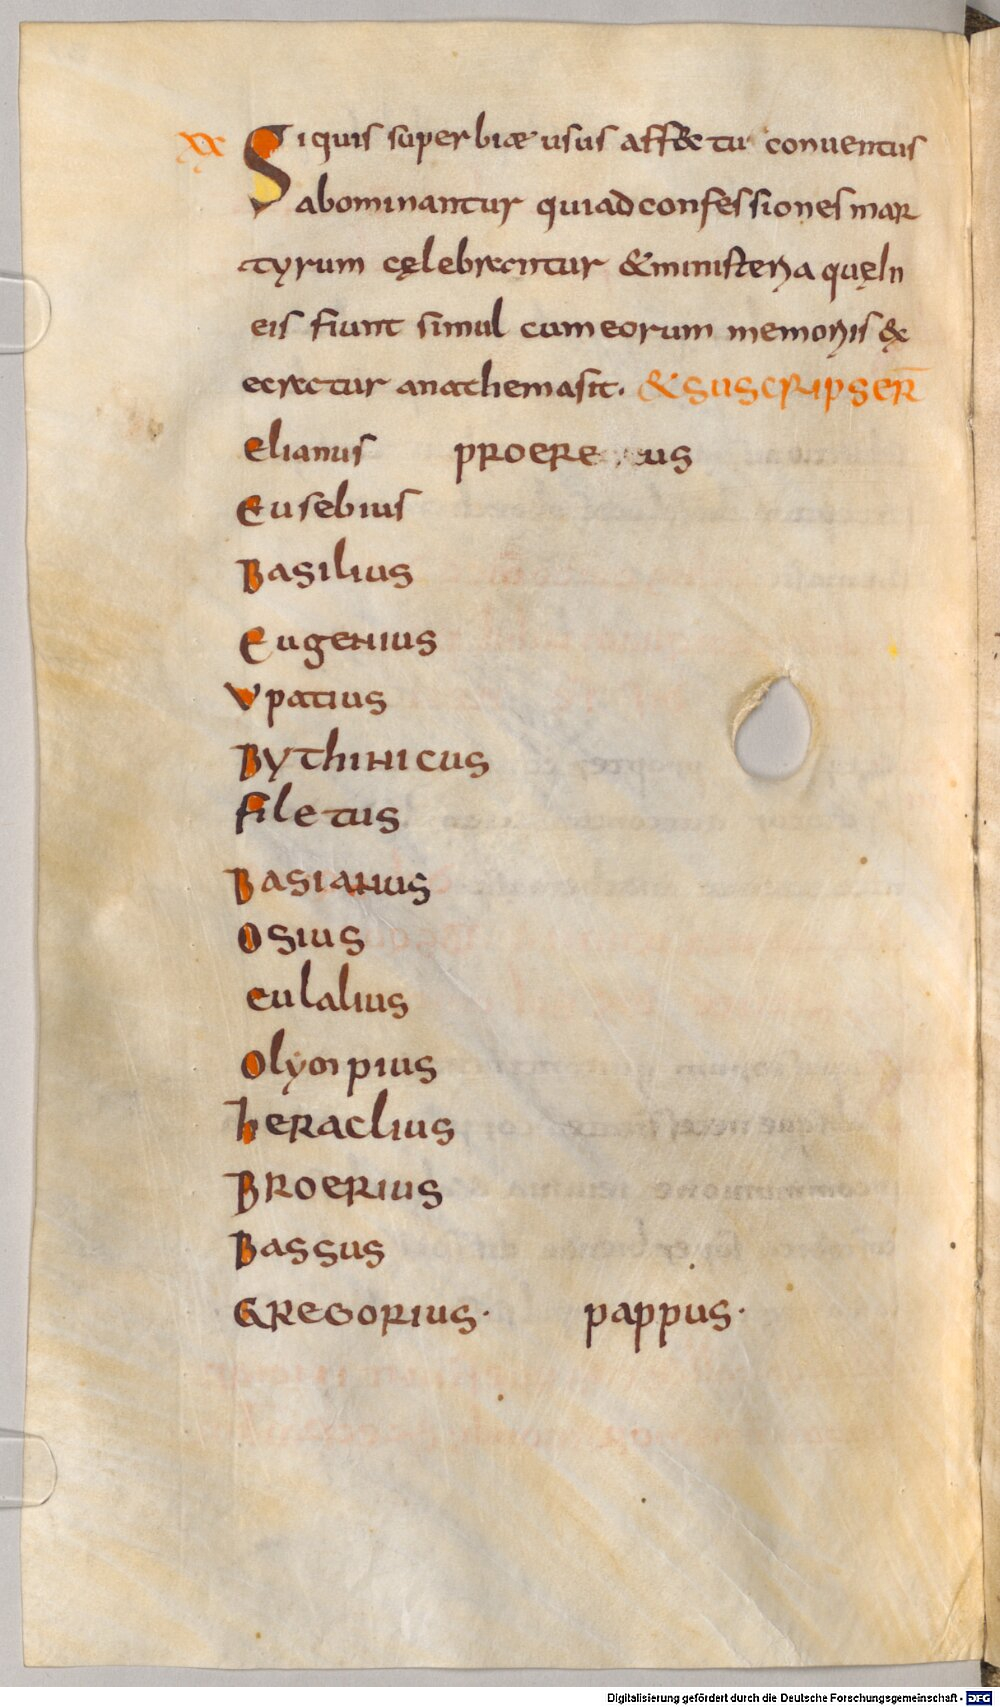 xx Si quis superbiae usus aff&ctu conuentus
abominantur qui ad confessiones mar
tyrum cęlebrantur & ministeria quę In
eis fiunt simul cum eorum memoriis &
ecratur anathema sit. & suscripser̄
elianus proere us
eusebius
Basilius
eugenius
vpatius
Bythinicus
filetus
Basianus
osius
eulalius
olympius
heraclius
Broerius
Bassus
Gregorius· pappus·
Digitalisierung gefördert durch die Deutsche Forschungsgemeinschaft - DFG